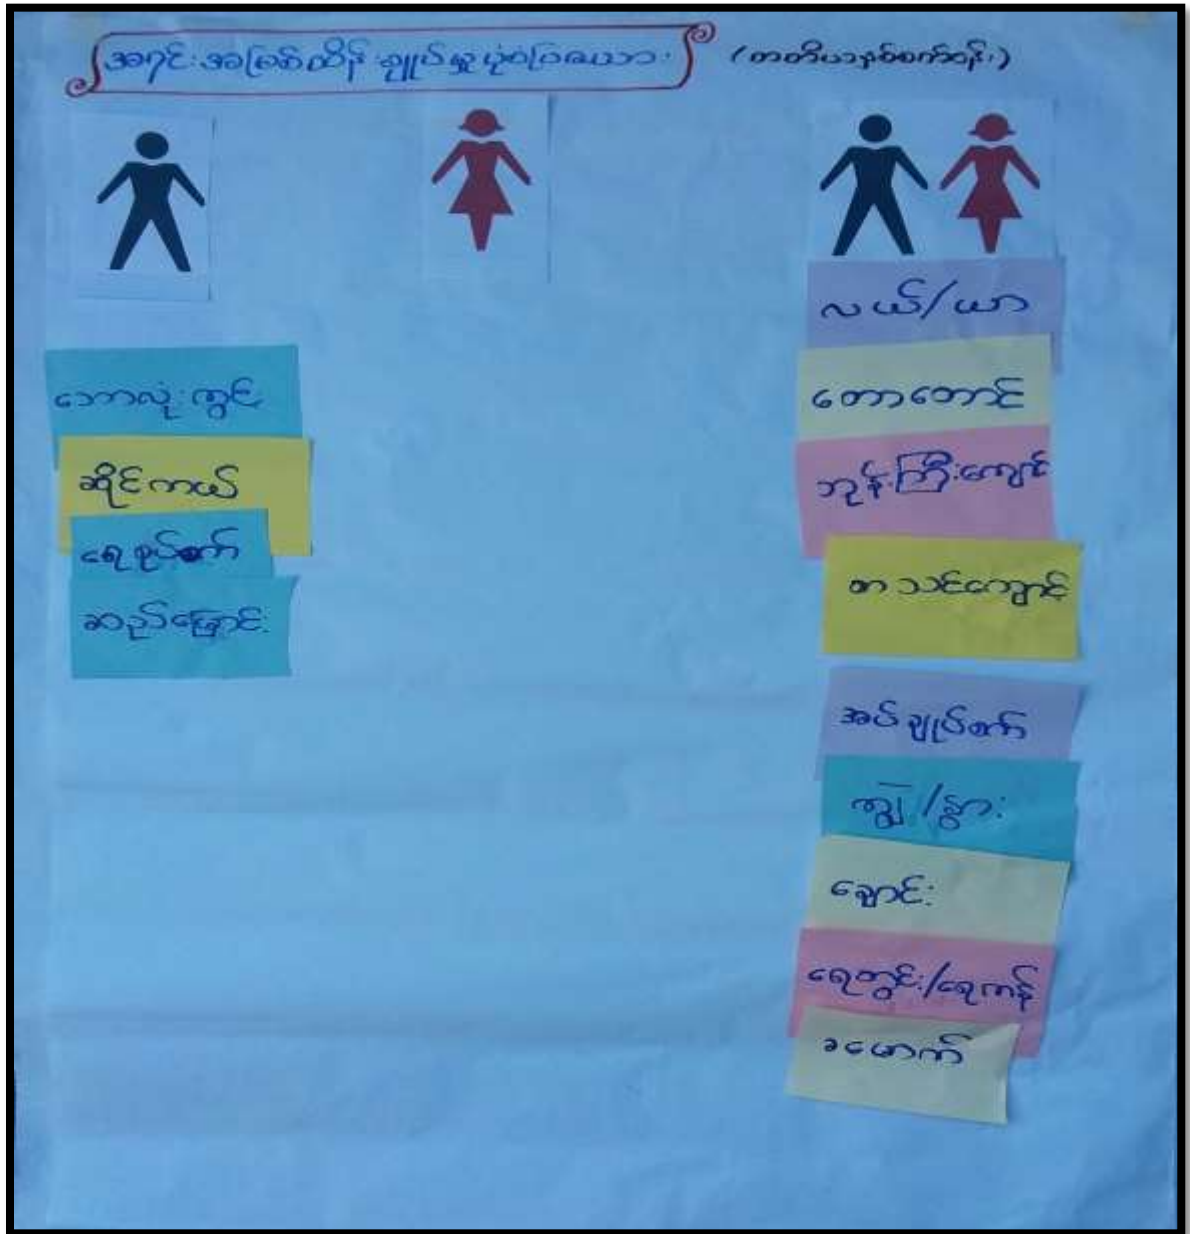 အရင်းအမြစ်ထိန်းချုပ်မှုပုံစံပြဇယား
(တတိယနှစ်စက်ဝန်း)
ဘောလုံးကွင်း
ဆိုင်ကယ်
ရေစုပ်စက်
ဆည်မြောင်း
လယ်/ယာ
တောတောင်
ဘုန်းကြီးကျောင်း
စာသင်ကျောင်း
အပ်ချုပ်စက်
ကျွဲ/နွား
ချောင်း
ရေတွင်း/ရေကန်
ခမောက်